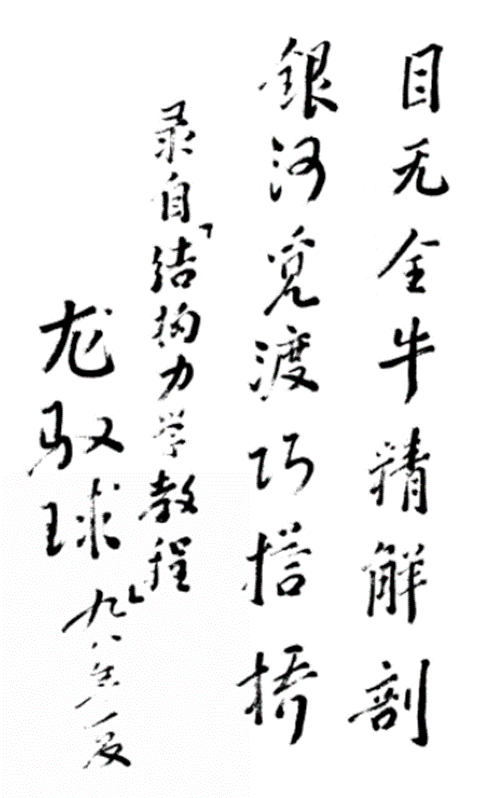 目无全牛精解剖
銀河觅渡巧搭桥
录自「结构力学教程」
龙驭球 九八年夏